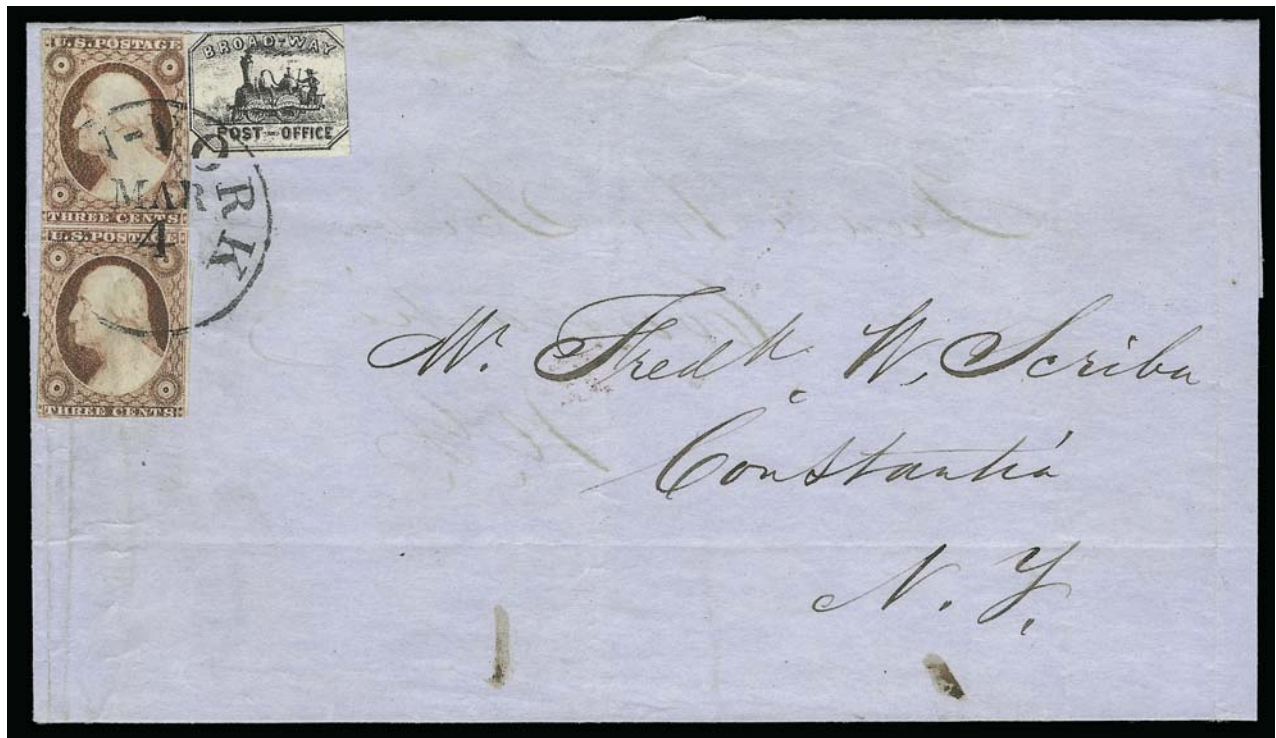 U.S. POSTAGE
THREE CENTS
U.S. POSTAGE
THREE CENTS
BROAD-WAY
POST-OFFICE
N-YORK
MAR
4
Mr. Fredk. W. Scriba
Constantia
N. Y.